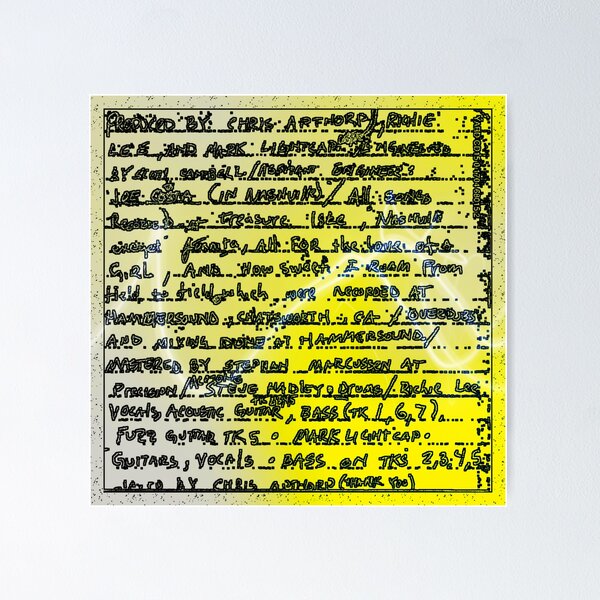 PRODUCED BY CHRIS APTHORP, RICHIE
LEE, AND MARK LIGHTCAP. ENGINEERED
BY CAMPBELL / ASSISTANT ENGINEER:
JOE COSTA (IN NASHVILLE) / All SONGS
Recorded at treasure Isle, Nashville
except female, All FOR the love of a
GIRL, AND How Sweet I ROAM From
field to field, which were RECORDED AT
HAMMERSOUND, CHATSWORTH, CA / OVERDUBS
AND MIXING DONE AT HAMMERSOUND /
MASTERED BY STEPHEN MARCUSSEN AT
PRECISION / STEVE HADLEY • DRUMS / Richie Lee
VOCALS, ACOUSTIC GUITAR, BASS (TK 1, 6, 7),
FUZZ GUITAR TK 5 • MARK LIGHTCAP •
GUITARS, VOCALS • BASS ON TKS 2,3,4,5
BY CHRIS (THANK YOU)